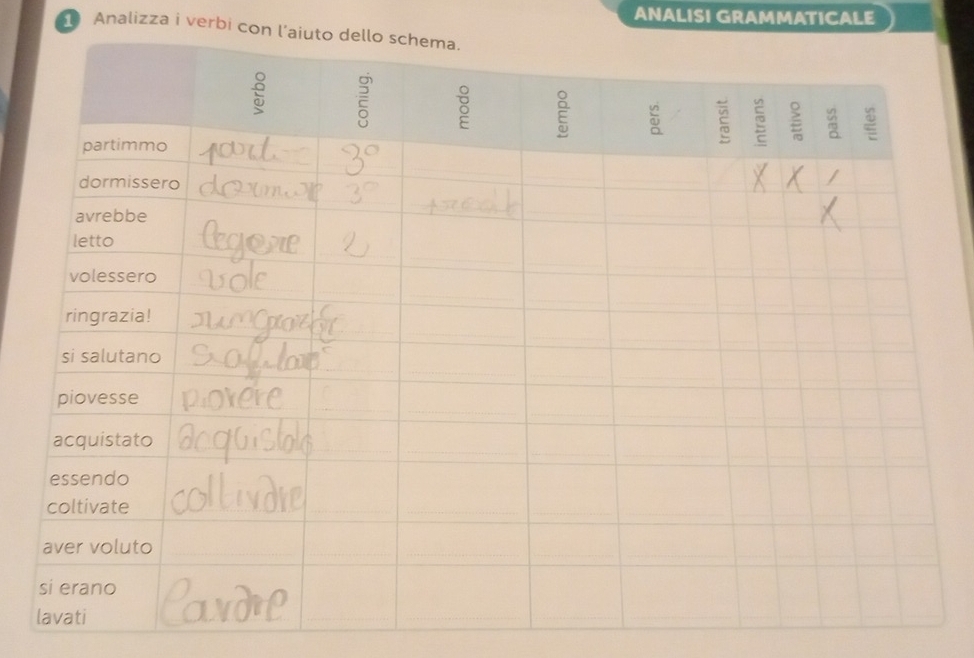 ANALISI GRAMMATICALE
1 Analizza i verbi con l'aiuto dello schema.
verbo coniug. modo tempo pers. transit. intrans. attivo pass. rifles.
partimmo 3°
dormissero dormire 3°
avrebbe
letto legere 2
volessero vole
ringrazia!
si salutano
piovesse piovere
acquistato
essendo
coltivate coltivare
aver voluto
si erano
lavati lavare